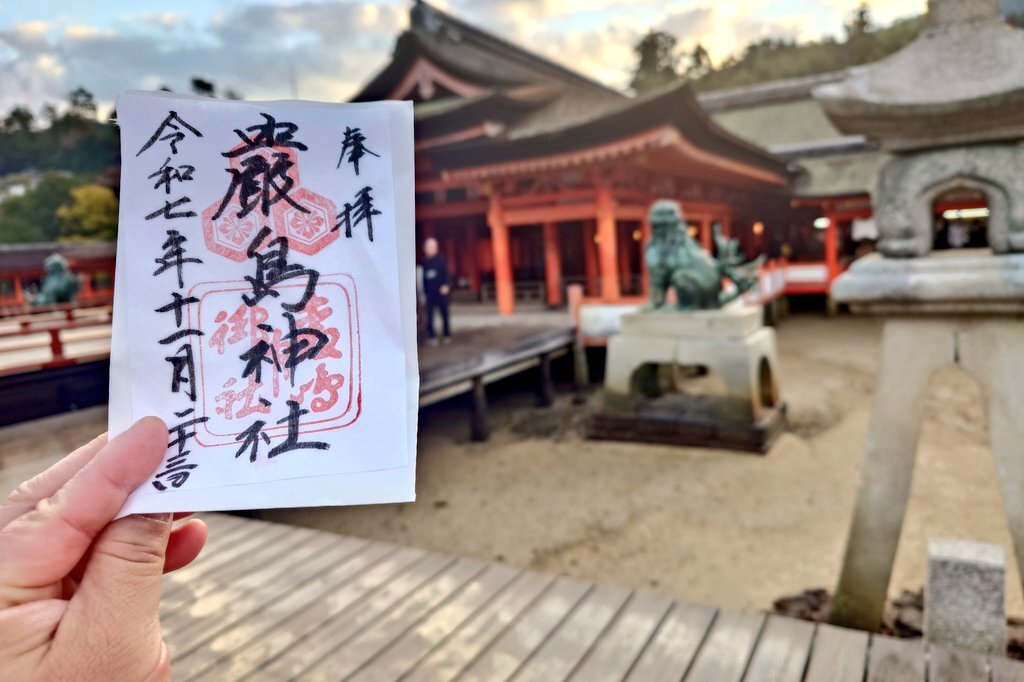 奉拝
厳島神社
厳嶋
御神社
令和七年十一月二十三日